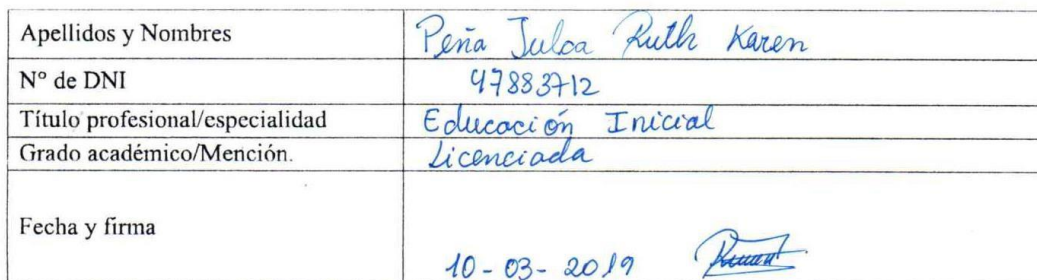 Apellidos y Nombres Peña Julca Ruth Karen
N° de DNI 47883712
Título profesional/especialidad Educación Inicial
Grado académico/Mención. Licenciada
Fecha y firma
10-03-2019